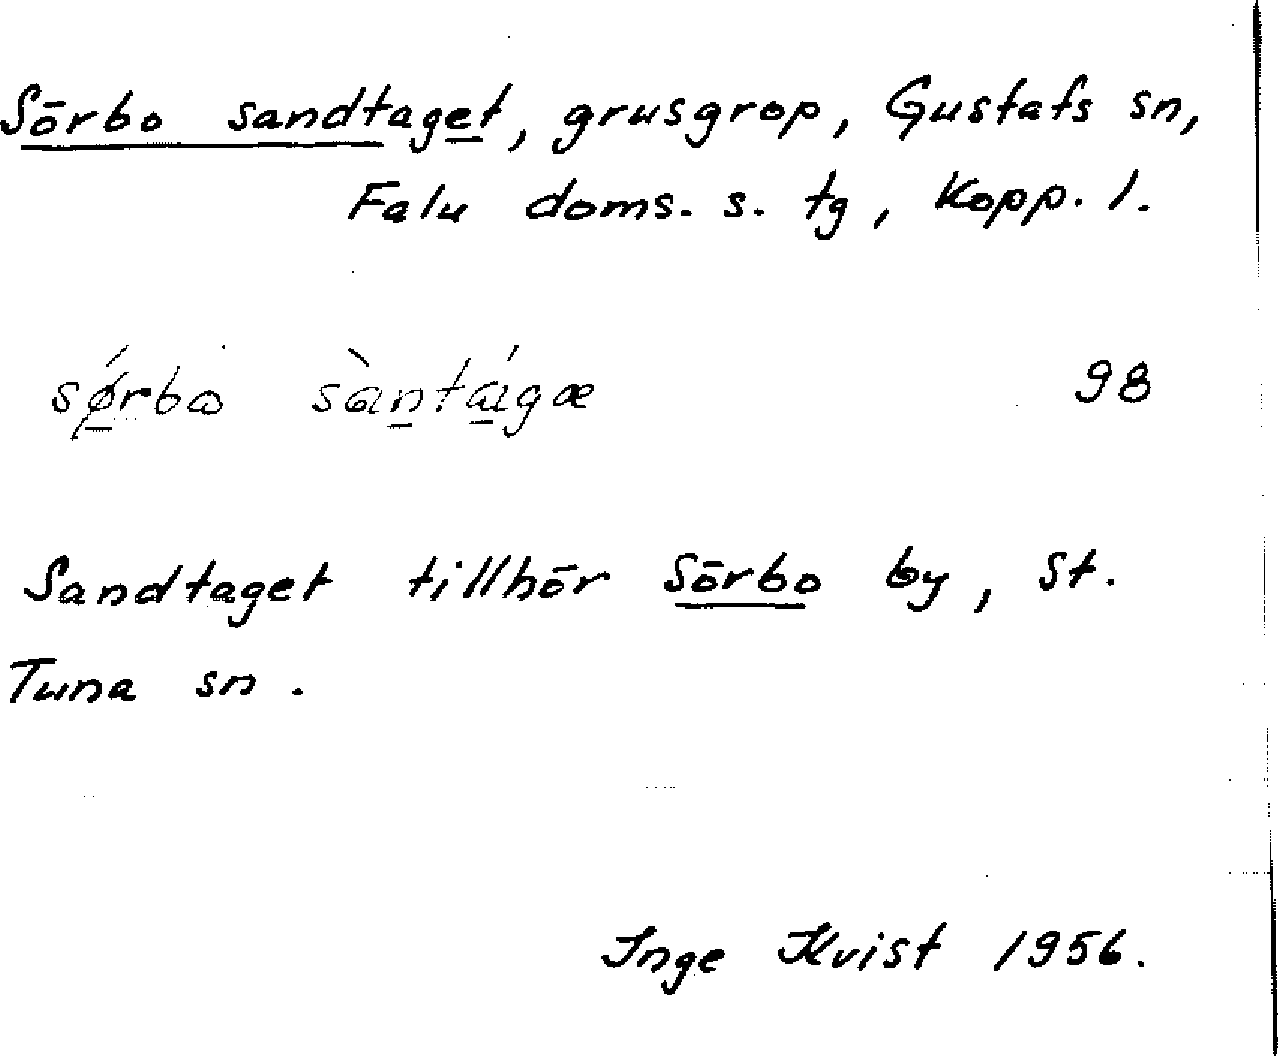 Sörbo sandtaget, grusgrop, Gustafs sn,
Falu doms. s. tg, Kopp. l.
sǿrbo sàntága 98
Sandtaget tillhör Sörbo by, St.
Tuna sn.
Inge Kvist 1956.